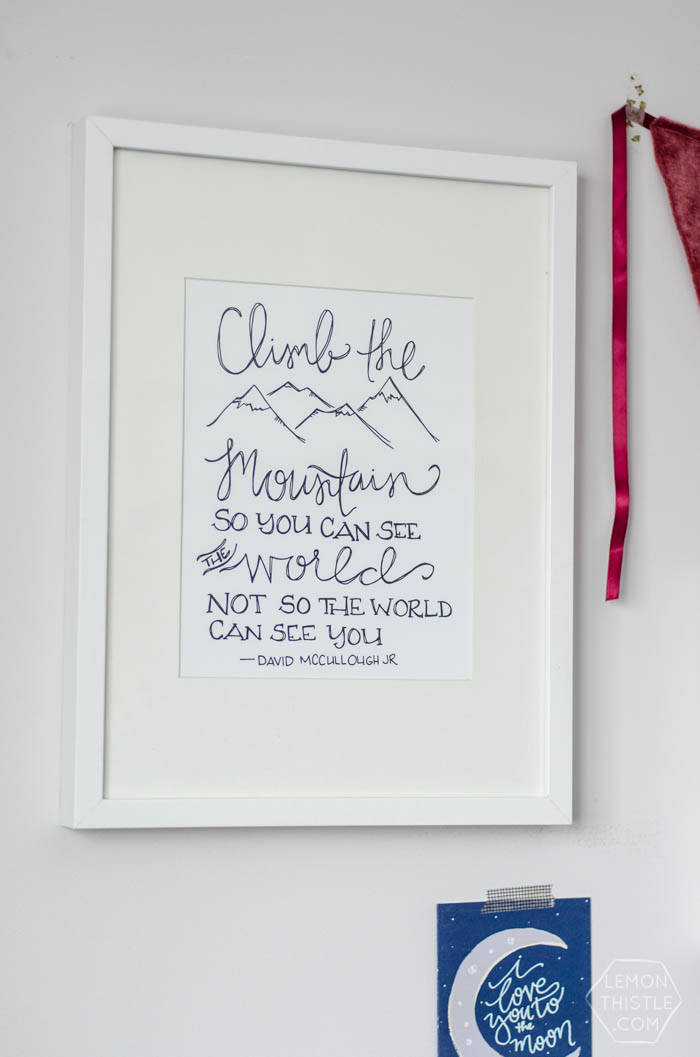 Climb the
Mountain
SO YOU CAN SEE
THE World
NOT SO THE WORLD
CAN SEE YOU
—DAVID MCCULLOUGH JR
i
love
you to
the
moon
LEMON
THISTLE
.COM